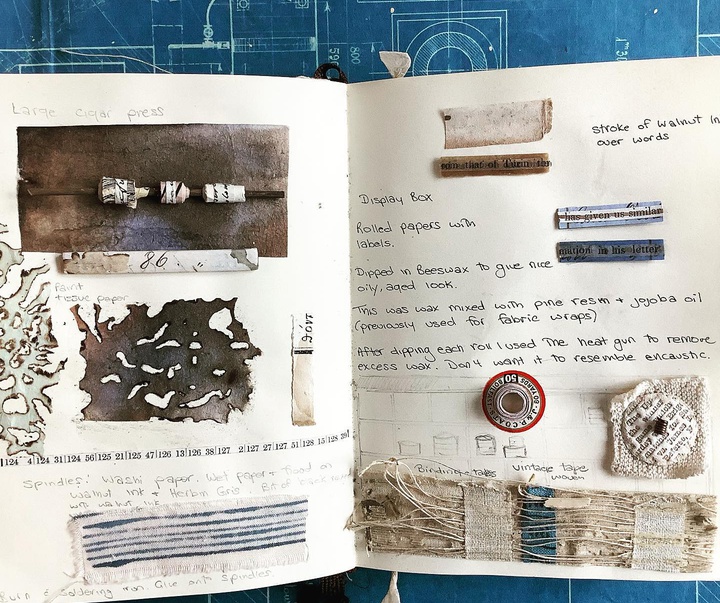 Large cigar press
86
Paint
tissue paper
1705
124 4 31 124 51 25 56 125 21 125 47 126 13 126 38 127 2 127 27 127 51 128 15 128 39
Spindles: Washi paper. Wet paper + food on
walnut ink + Herbin Gris Bit of
Burn & soldering iron. Glue onto spindles.
stroke of walnut in
over words
that of
Display Box
Rolled papers with
labels.
has given us similar
mation in his letter
Dipped in Beeswax to give nice
oily, aged look.
This was wax mixed with pine resin + jojoba oil
(previously used for fabric wraps)
After dipping each roll I used the heat gun to remove
excess wax. Don't want it to resemble encaustic.
50
J. & P. COATS
Binding tapes Vintage tape
woven